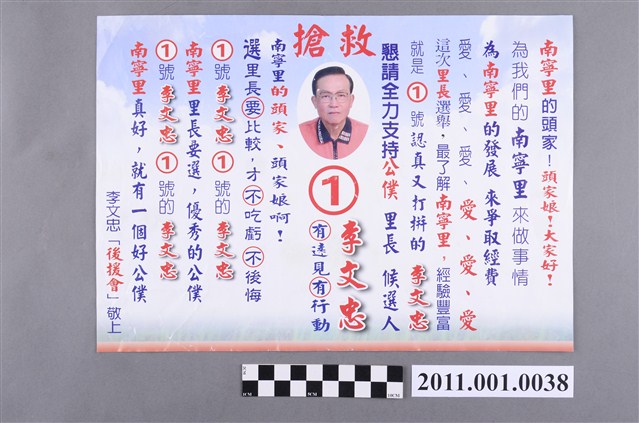 南寧里的頭家！頭家娘！大家好！
為我們的南寧里來做事情
為南寧里的發展 來爭取經費
愛、愛、愛、愛、愛、愛、愛
這次里長選舉，最了解南寧里，經驗豐富
就是①號認真又打拼的李文忠
懇請全力支持公僕 里長 候選人
搶救
①
李文忠
有遠見有行動
南寧里的頭家、頭家娘啊！
選里長要比較，才不吃虧不後悔
①號李文忠①號的李文忠
南寧里 里長要選，優秀的公僕
①號李文忠①號的李文忠
南寧里真好，就有一個好公僕
李文忠「後援會」敬上
2011.001.0038